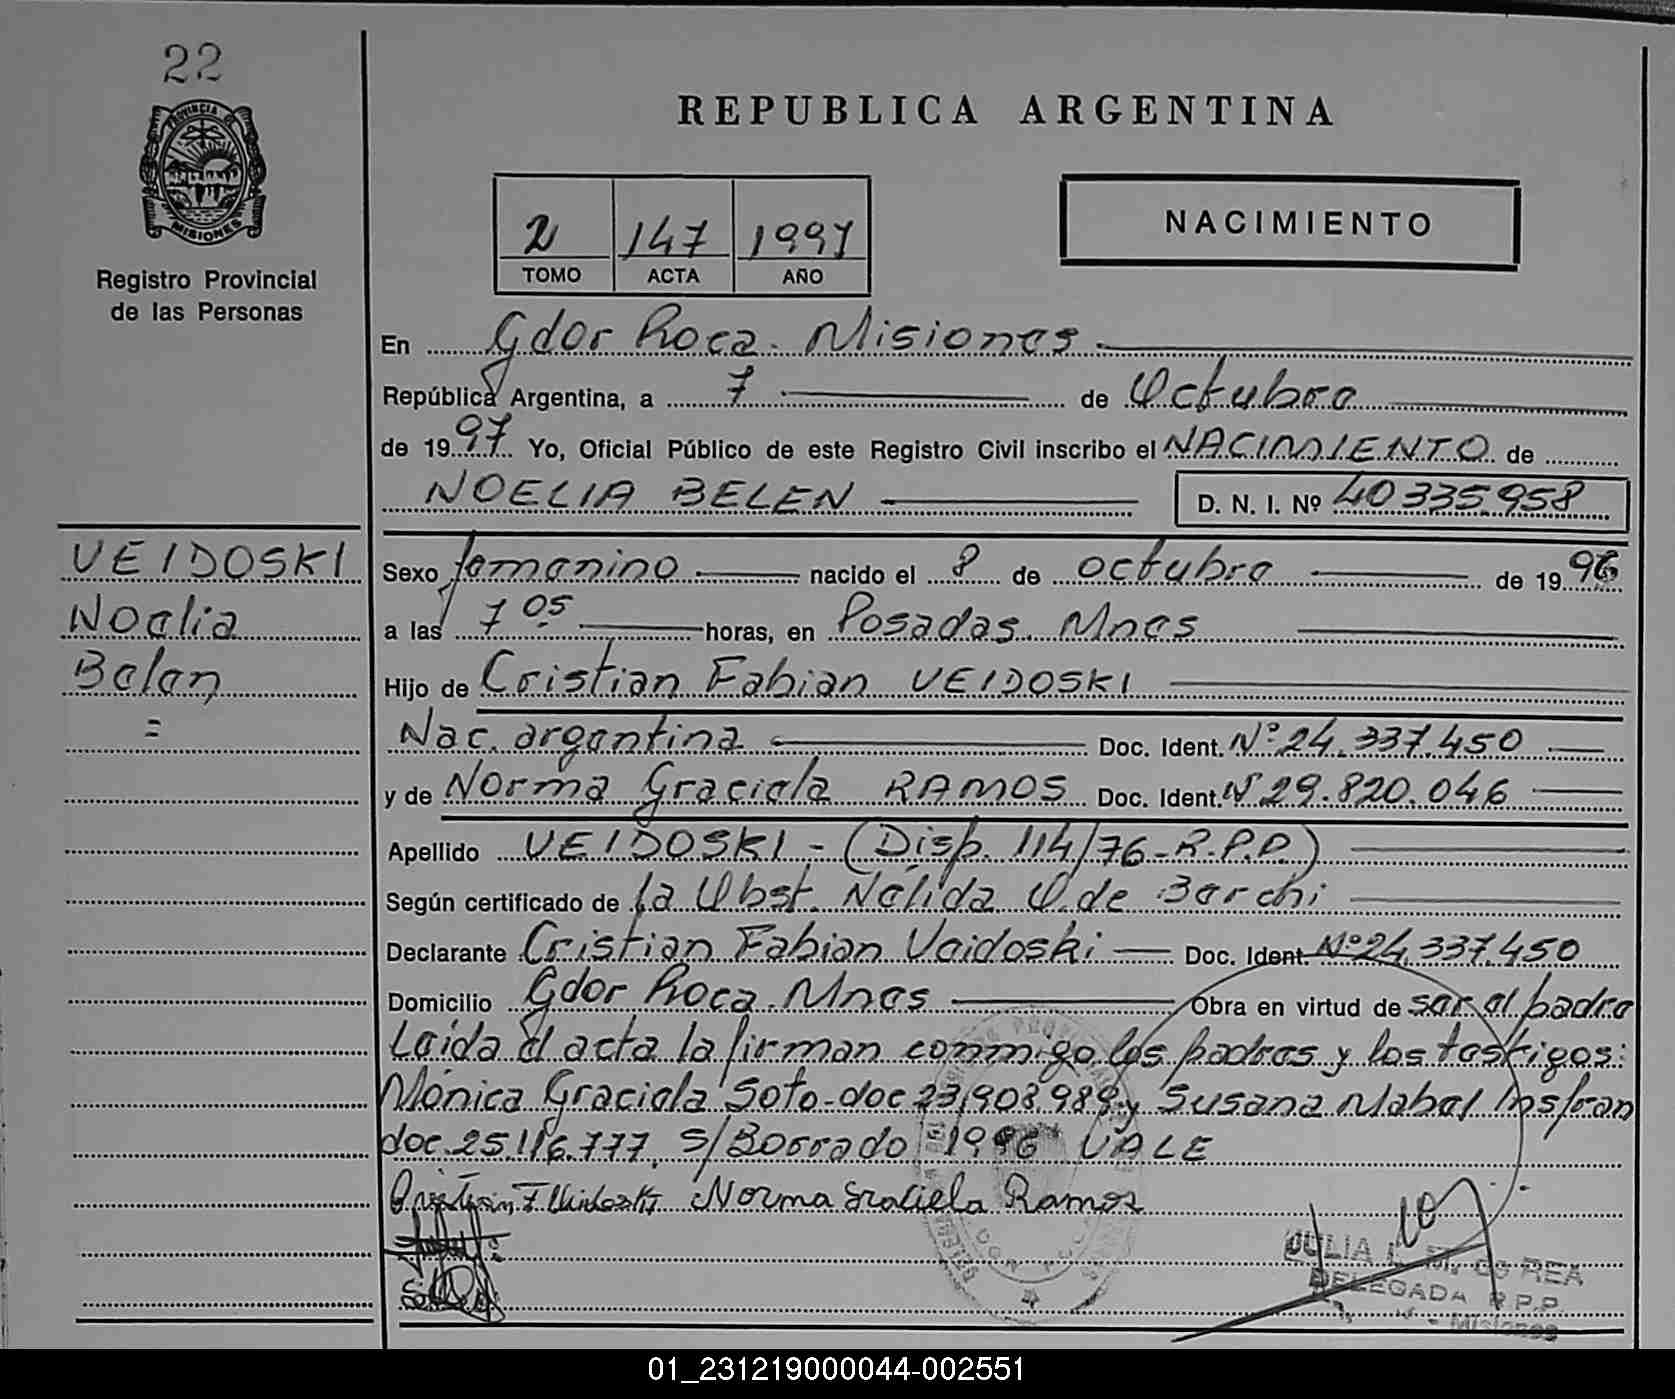 22
PROVINCIA DE
MISIONES
Registro Provincial
de las Personas
REPUBLICA ARGENTINA
2 147 1997
TOMO ACTA AÑO
NACIMIENTO
En Gdor Roca. Misiones
República Argentina, a 7 de Octubre
de 1997 Yo, Oficial Público de este Registro Civil inscribo el NACIMIENTO de
NOELIA BELEN D. N. I. Nº 40335958
VEIDOSKI
Noelia
Belen
=
Sexo femenino nacido el 8 de octubre de 1996
a las 7 05 horas, en Posadas. Mnes
Hijo de Cristian Fabian VEIDOSKI
Nac. argentina Doc. Ident. Nº 24.337.450
y de Norma Graciela RAMOS Doc. Ident. Nº 29.820.046
Apellido VEIDOSKI - (Disp. 114/76 - R.P.P.)
Según certificado de la Obst. Nélida O. de Barchi
Declarante Cristian Fabian Veidoski Doc. Ident. Nº 24.337.450
Domicilio Gdor Roca. Mnes Obra en virtud de ser el padre
Leida el acta la firman conmigo los padres y los testigos:
Mónica Graciela Soto - doc 23.908.989 y Susana Mabel Insfran
doc. 25.116.777. S/Borrado 1996 VALE
Norma Graciela Ramos
JULIA REA
DELEGADA R.P.P.
Misiones
01_231219000044-002551